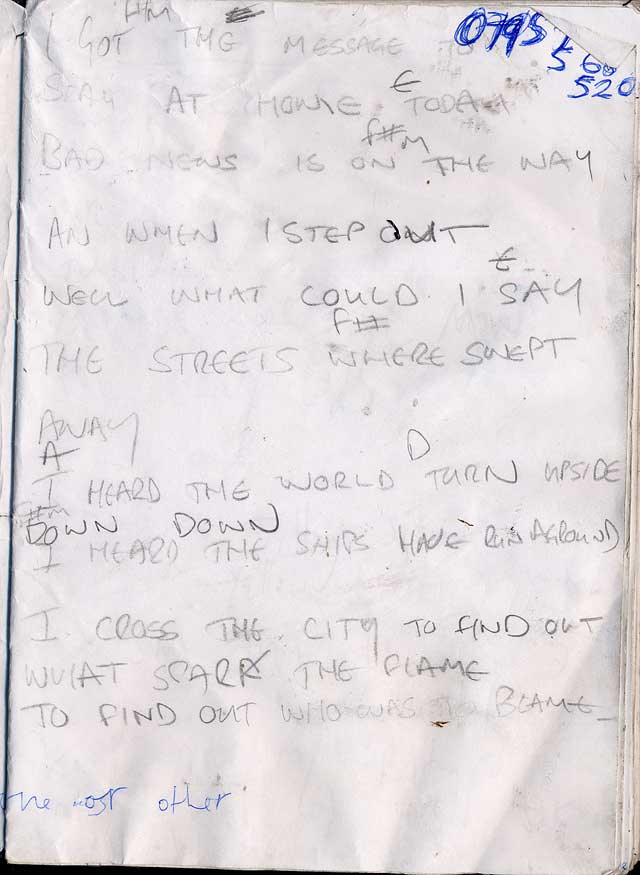 F#M E
0795
I GOT THE MESSAGE TO
5 60
520
E
STAY AT HOME TODAY
F#M
BAD NEWS IS ON THE WAY
AN WHEN I STEP OUT
E
WELL WHAT COULD I SAY
F#
THE STREETS WHERE SWEPT
AWAY
A D
I HEARD THE WORLD TURN UPSIDE
DOWN DOWN
I HEARD THE SHIPS HAVE RUN AGROUND
I CROSS THE CITY TO FIND OUT
WHAT SPARK THE FLAME
TO FIND OUT WHO WAS TO BLAME
other